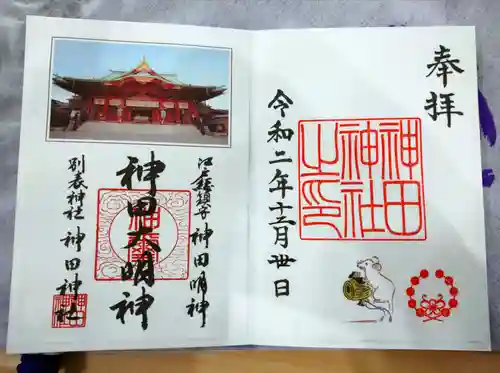 奉拝
神田
神社
之印
令和二年十二月卅日
江戸総鎮守 神田明神
神田大明神
別表神社 神田神社